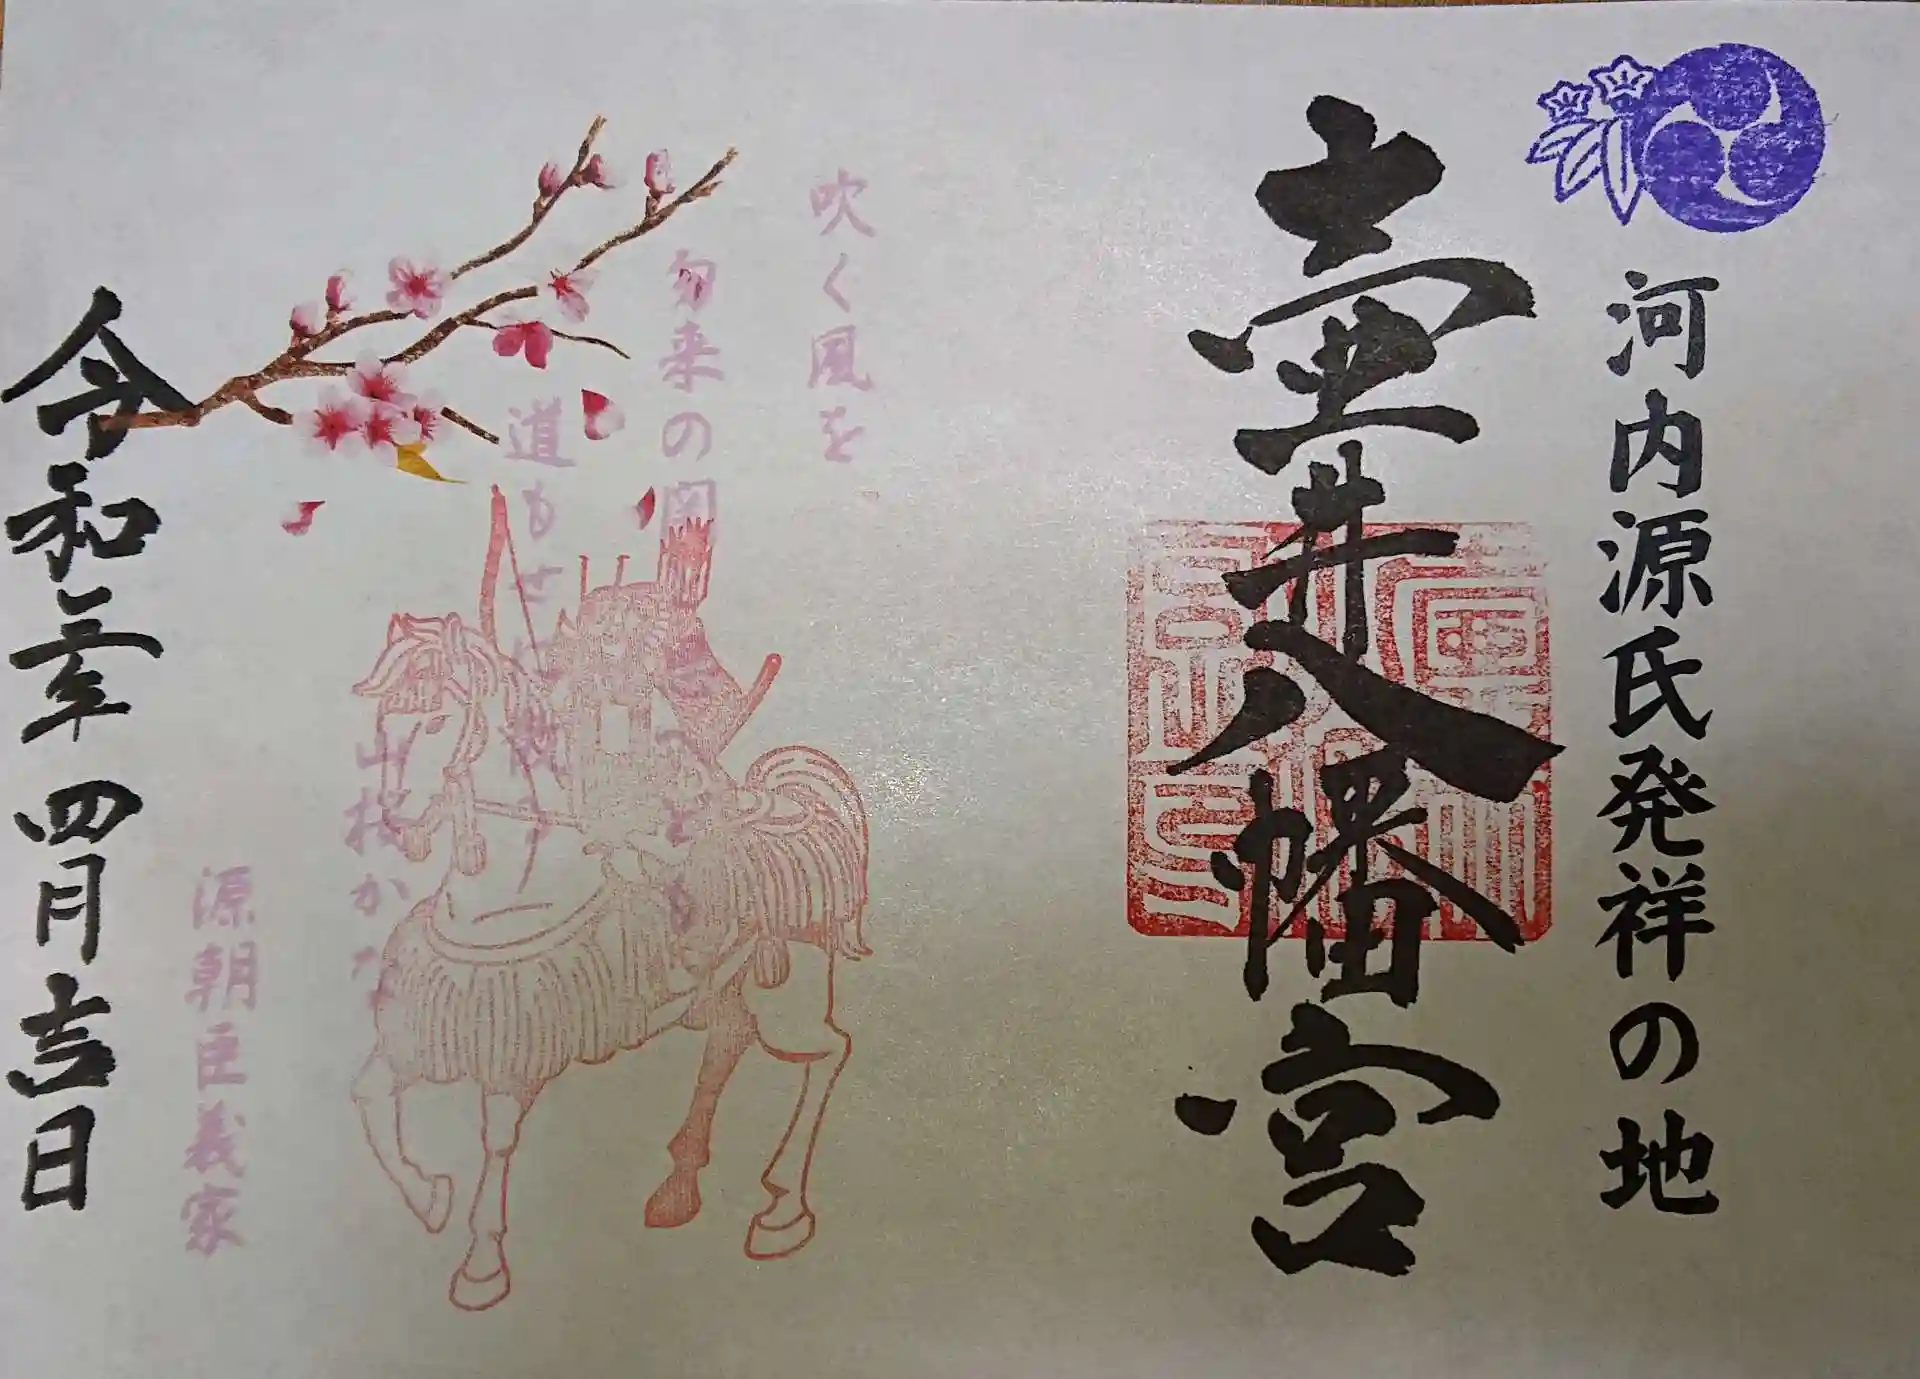 河内源氏発祥の地
壷井八幡宮
吹く風を
勿来の関と思へども
道もせに散る
山桜かな
源朝臣義家
令和三年四月吉日